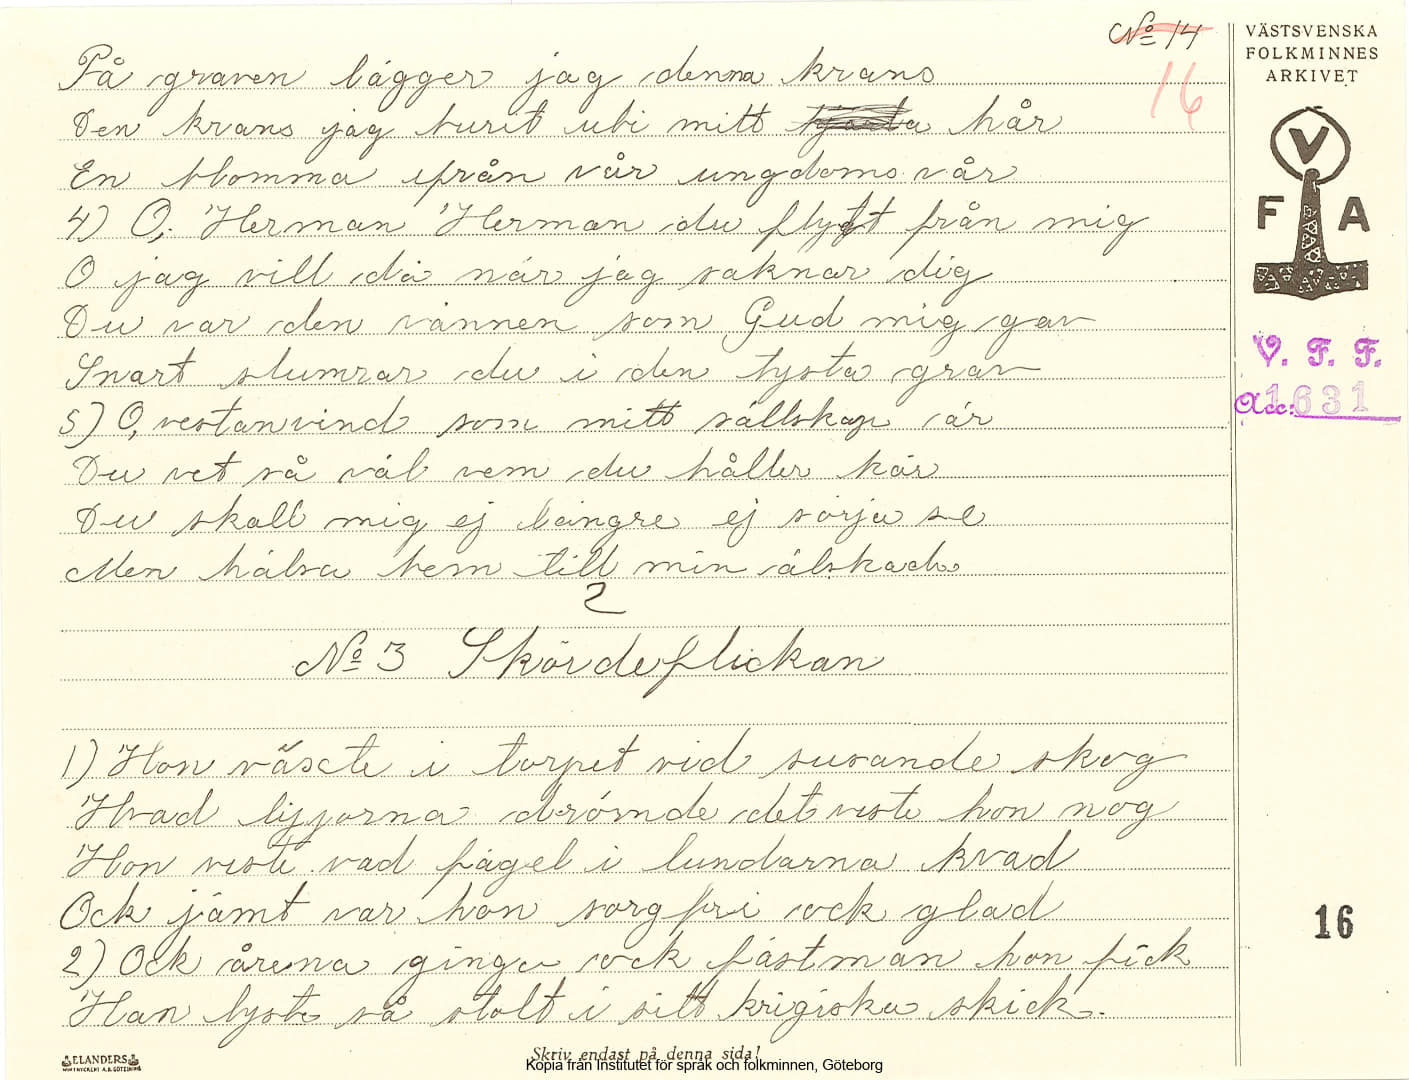 No 14
16
På graven lägger jag denna krans
Den krans jag burit ubi mitt hår
En blomma ifrån vår ungdoms vår
4) O, Herman Herman du flytt från mig
O jag vill dö när jag saknar dig
Du var den vännen som Gud mig gav
Snart slumrar du i den tysta grav
5) O, vestanvind som mitt sällskap är
Du vet så väl vem du håller kär
Du skall mig ej längre ej sörja se
Men hälsa hem till min älskade
2
No 3 Skördeflickan
1) Hon växte i torpet vid susande skog
Hvad liljorna drömde det viste hon nog
Hon viste vad fågel i lundarna kvad
Ock jämt var hon sorgfri ock glad
2) Ock årena ginga ock fästman hon fick
Han lyste så stolt i sitt krigiska skick.
VÄSTSVENSKA
FOLKMINNES
ARKIVET
V
F A
V. F. F.
Acc: 1631
16
ELANDERS
BOKTRYCKERI A.B. GÖTEBORG
Skriv endast på denna sida!
Kopia från Institutet för språk och folkminnen, Göteborg